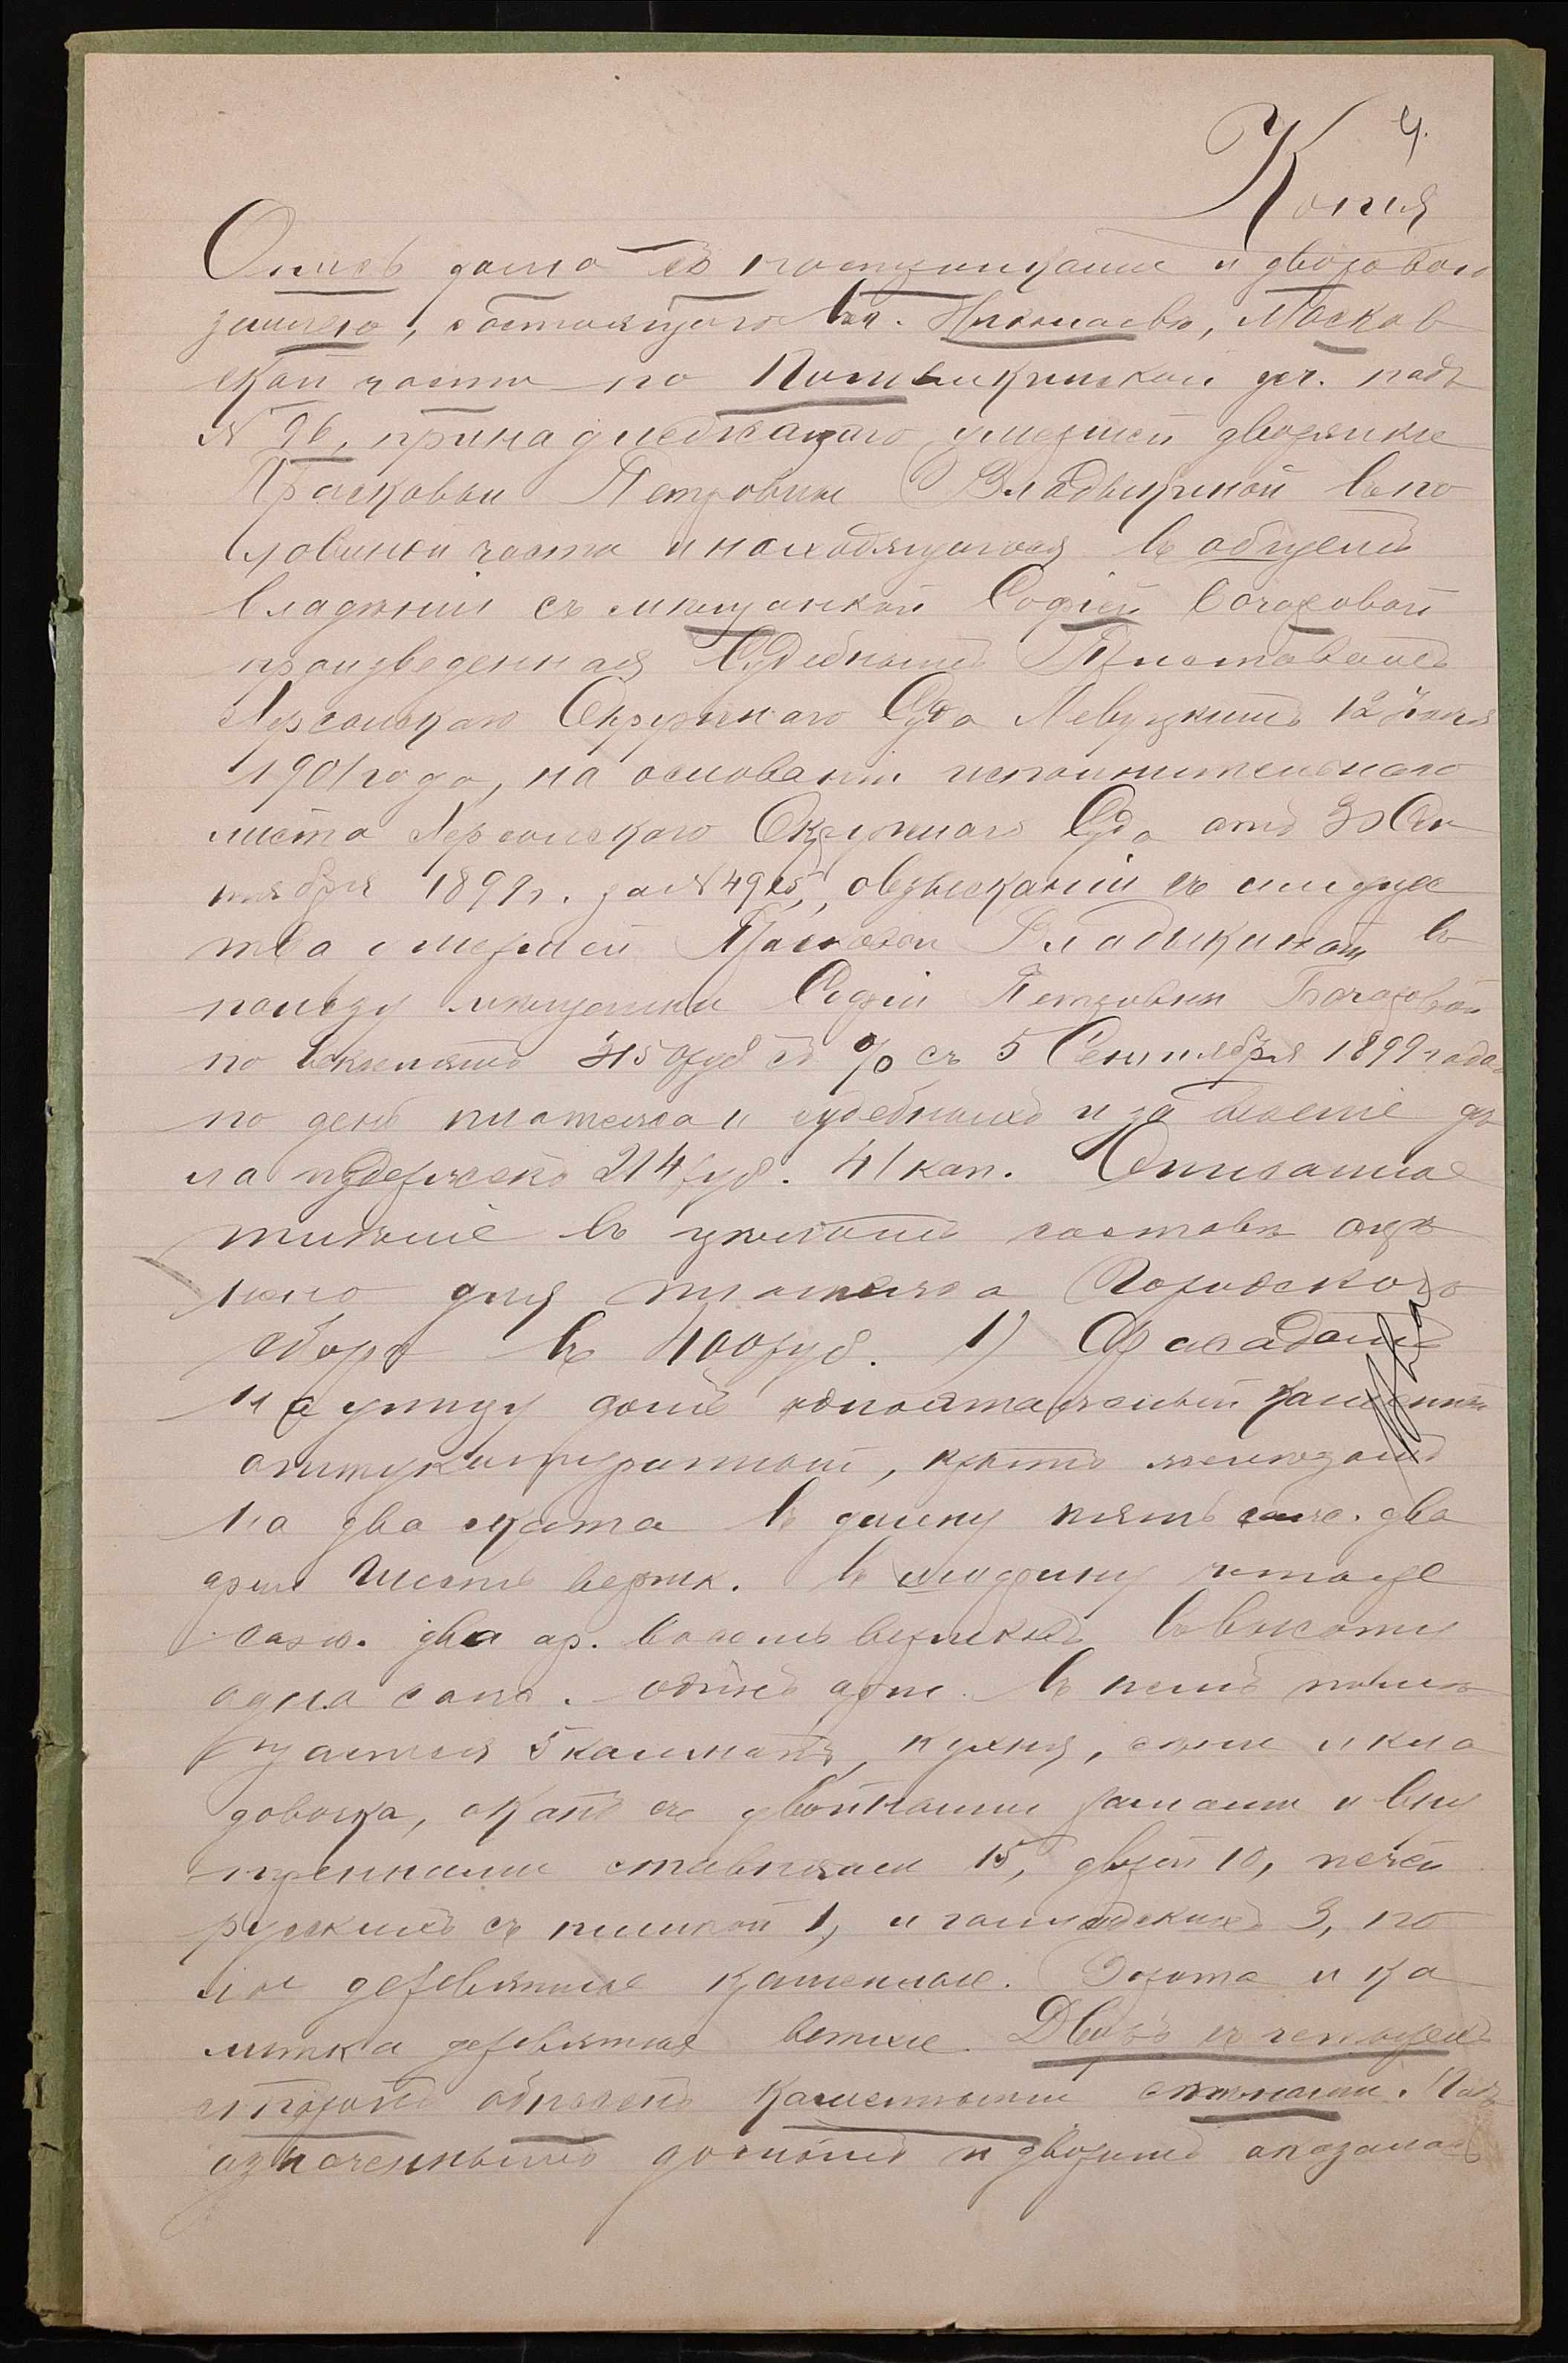 4.
Копія
Опись дома съ постройками и дворовою
землею, состоящаго въ г. Николаевѣ, Москов
ской части по Потемкинской ул. подъ
№ 96, принадлежащаго умершей дворянке
Прасковьи Петровны Владыкиной въ по
ловинной части и находящагося въ общемъ
владѣніи съ мѣщанкой Софіей
произведенная Судебнымъ Приставомъ
Херсонскаго Окружнаго Суда Левуцкимъ 12
1901 года, на основаніи исполнительнаго
листа Херсонскаго Окружнаго Суда отъ
тября 1899 г. за № о взысканіи съ имуще
тва умершей Прасковьи Владыкиной въ
пользу мѣщанки Софіи Петровны
по векселямъ руб съ % съ 5 Сентября 1899 года
по день платежа и судебныхъ и за веденіе дѣ
ла издержекъ 214 руб. 41 коп. Описанное
имѣніе въ цѣломъ составѣ оцѣ
нено для платежа Городского
сбора въ 400 руб. 1) Фасадомъ
на улицу домъ одноэтажный каменный
оштукатуренный, крытъ желѣзомъ
на два ската въ длину пять саж. два
арш. шесть вершк. въ ширину четыре
саж. два ар. восемь вершковъ въ высоту
одна саж. одинъ арш. Въ немъ помѣ
щается 5 комнатъ, кухня, сѣни и кла
довочка, оконъ съ двойными рамами и вну
тренними ставнями 15, дверей 10, печей
русскихъ съ плитой 1, и голландскихъ 3, по
лы деревянные крашенные. Ворота и ка
литка деревянные ветхіе. Дворъ съ четырехъ
сторонъ обнесенъ каменными стѣнами. Подъ
означеннымъ домомъ и дворомъ оказалось